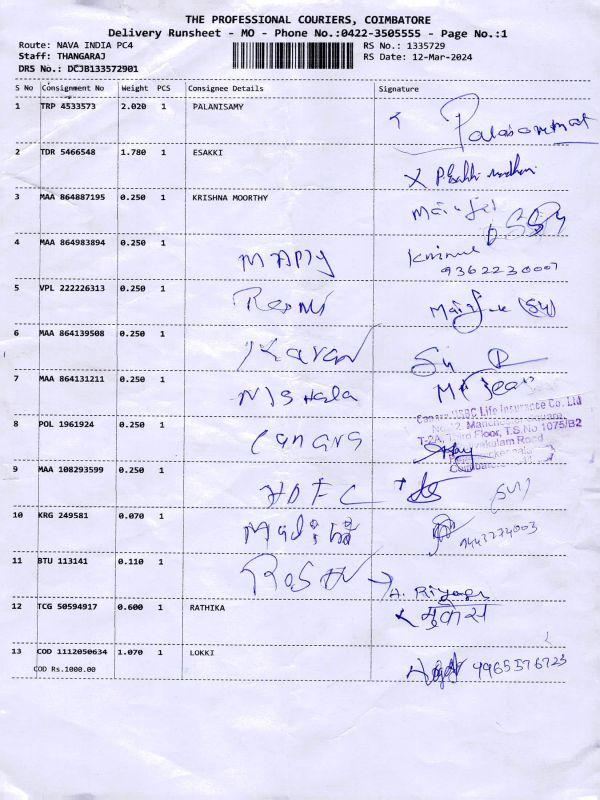 THE PROFESSIONAL COURIERS, COIMBATORE
Delivery Runsheet - MO - Phone No.:0422-3505555 - Page No.:1
Route: NAVA INDIA PC4 RS No.: 1335729
Staff: THANGARAJ RS Date: 12-Mar-2024
DRS No.: DCJB133572901
S No Consignment No Weight PCS Consignee Details Signature
1 TRP 4533573 2.020 1 PALANISAMY
2 TDR 5466548 1.780 1 ESAKKI
3 MAA 864887195 0.250 1 KRISHNA MOORTHY
4 MAA 864983894 0.250 1
9362230007
5 VPL 222226313 0.250 1
6 MAA 864139508 0.250 1 Karan
7 MAA 864131211 0.250 1 Nishala
Canara HSBC Life Insurance Co. Ltd
8 POL 1961924 0.250 1 Canara
Floor, T.S.No 1075/B2
Road
Coimbatore
9 MAA 108293599 0.250 1 HDFC
10 KRG 249581 0.070 1 9443274003
11 BTU 113141 0.110 1 Roshn
A. Riyas
12 TCG 50594917 0.600 1 RATHIKA
13 COD 1112050634 1.070 1 LOKKI 9965576723
COD Rs.1000.00